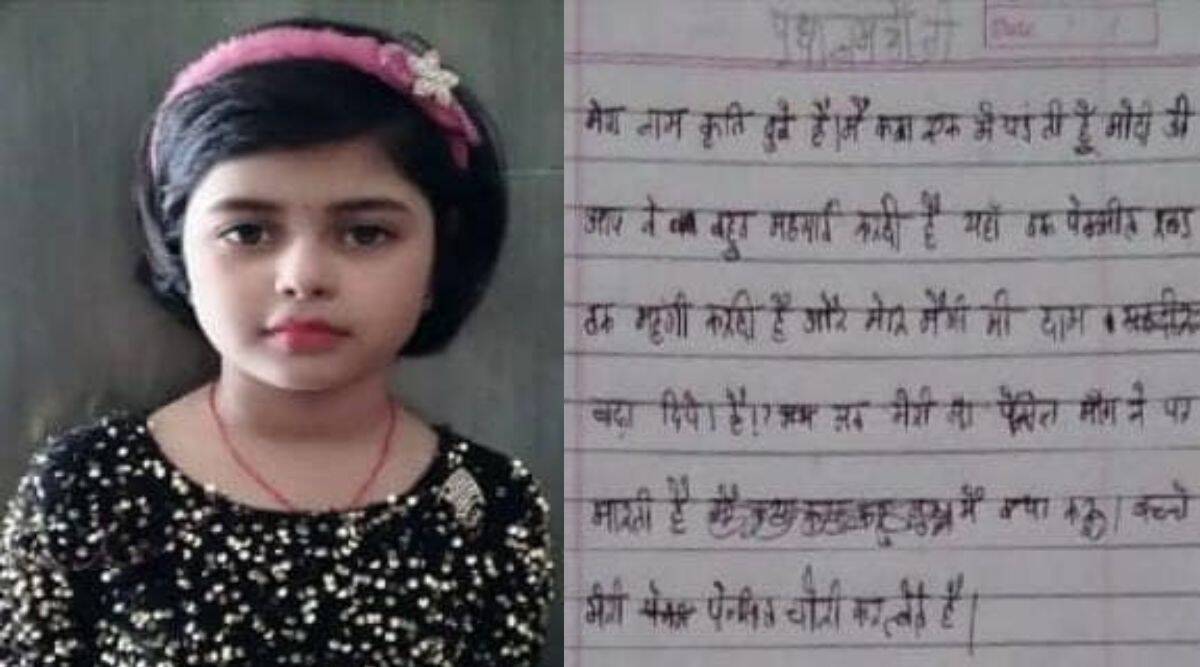 प्रधानमंत्री जी
Date
मेरा नाम कृति दुबे है। मैं कक्षा एक में पढ़ती हूँ मोदी जी
आप ने बहुत महगाई करदी है यहाँ तक पेन्सील रबड़
तक महगी करदी है और मेरे मैगी की दाम
बढ़ा दिये है। अब मेरी माँ पेंसिल माँगने पर
मारती है मैं क्या करू। बच्चे
मेरी पेन्सिल चोरी कर लेते है।